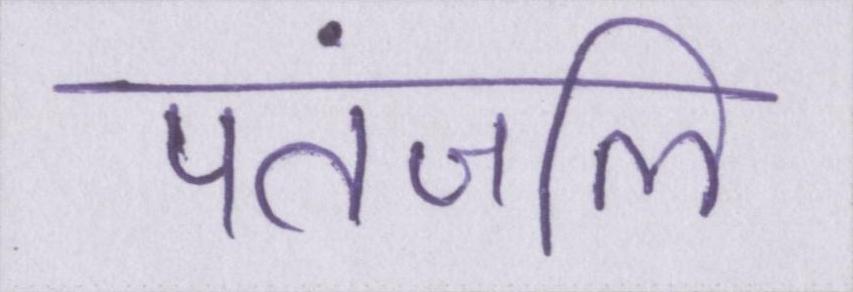 पतंजलि